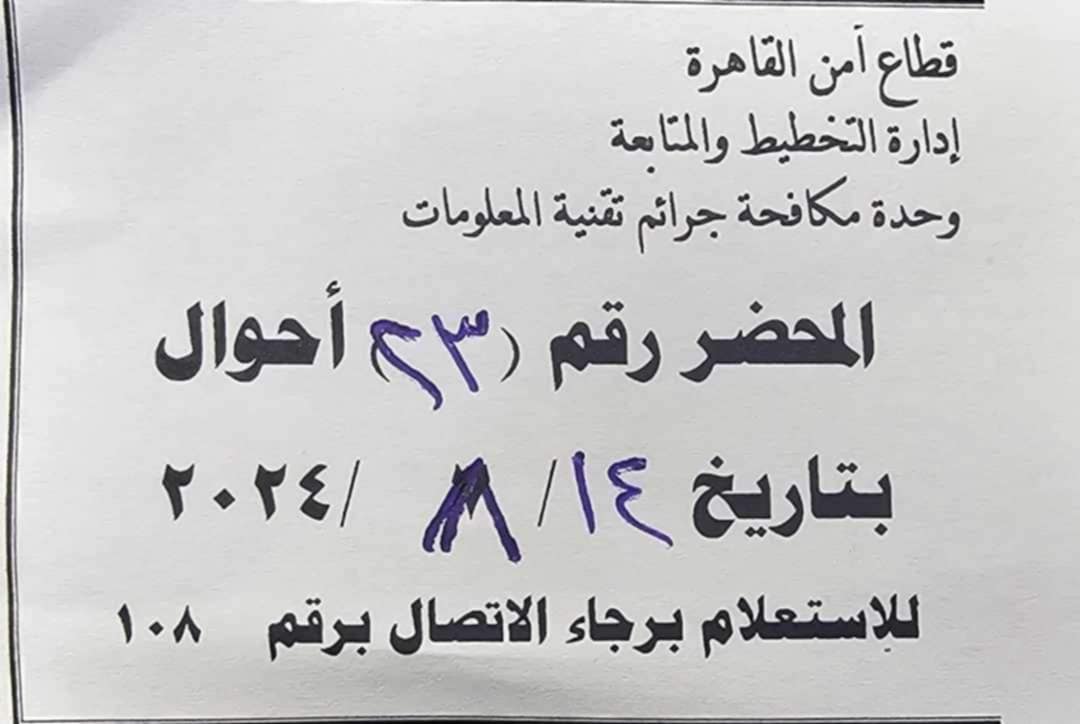 قطاع أمن القاهرة
إدارة التخطيط والمتابعة
وحدة مكافحة جرائم تقنية المعلومات
المحضر رقم (٢٣) أحوال
بتاريخ ١٤/ ٨ /٢٠٢٤
للإستعلام برجاء الاتصال برقم ١٠٨